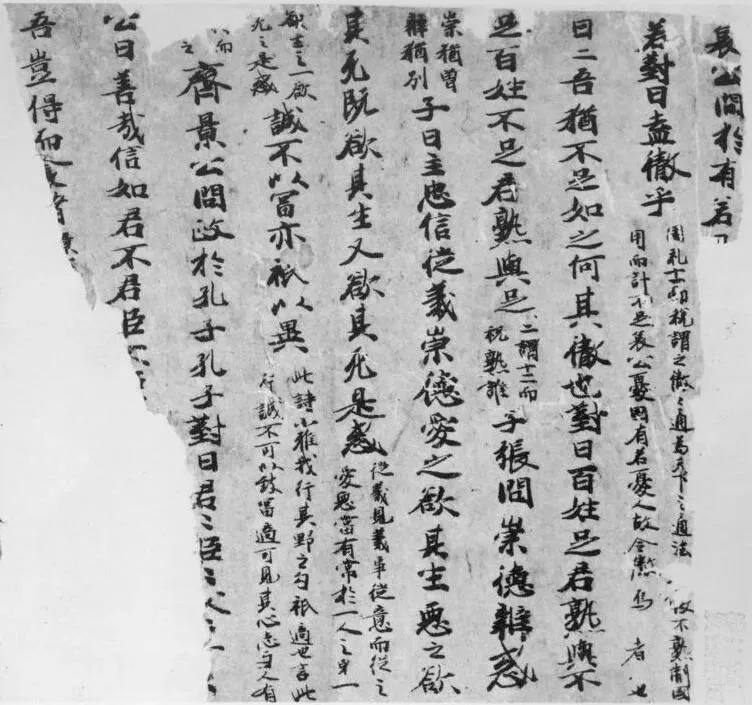 哀公問於有若
若對曰盍徹乎
周礼十一而税謂之徹々通為天下之通法 收不熟制國
用而計不足哀公憂国有若憂人故令徹焉 者也
曰二吾猶不足如之何其徹也對曰百姓足君熟與不
足百姓不足君熟與足
二謂十二而
税熟誰
子張問崇德辨惑
崇猶曽
辨猶別
子曰主忠信從義崇德愛之欲其生惡之欲
其死既欲其生又欲其死是惑
從義見義事從意而從之
愛惡當有常於一人之身一
欲生之一欲
死之是惑
誠不以冨亦祇以異
此詩小雅我行其野之句祇適也言此
行誠不可以致富適可見其心志 人有
八而
之
齊景公問政於孔子孔子對曰君々臣々父々
公曰善哉信如君不君臣不
吾豈得而食諸